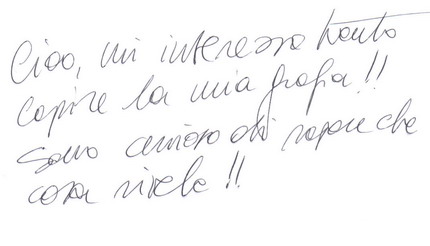 Ciao, mi interessa tanto
capire la mia grafia!!
Sono curioso di sapere che
cosa rivela!!